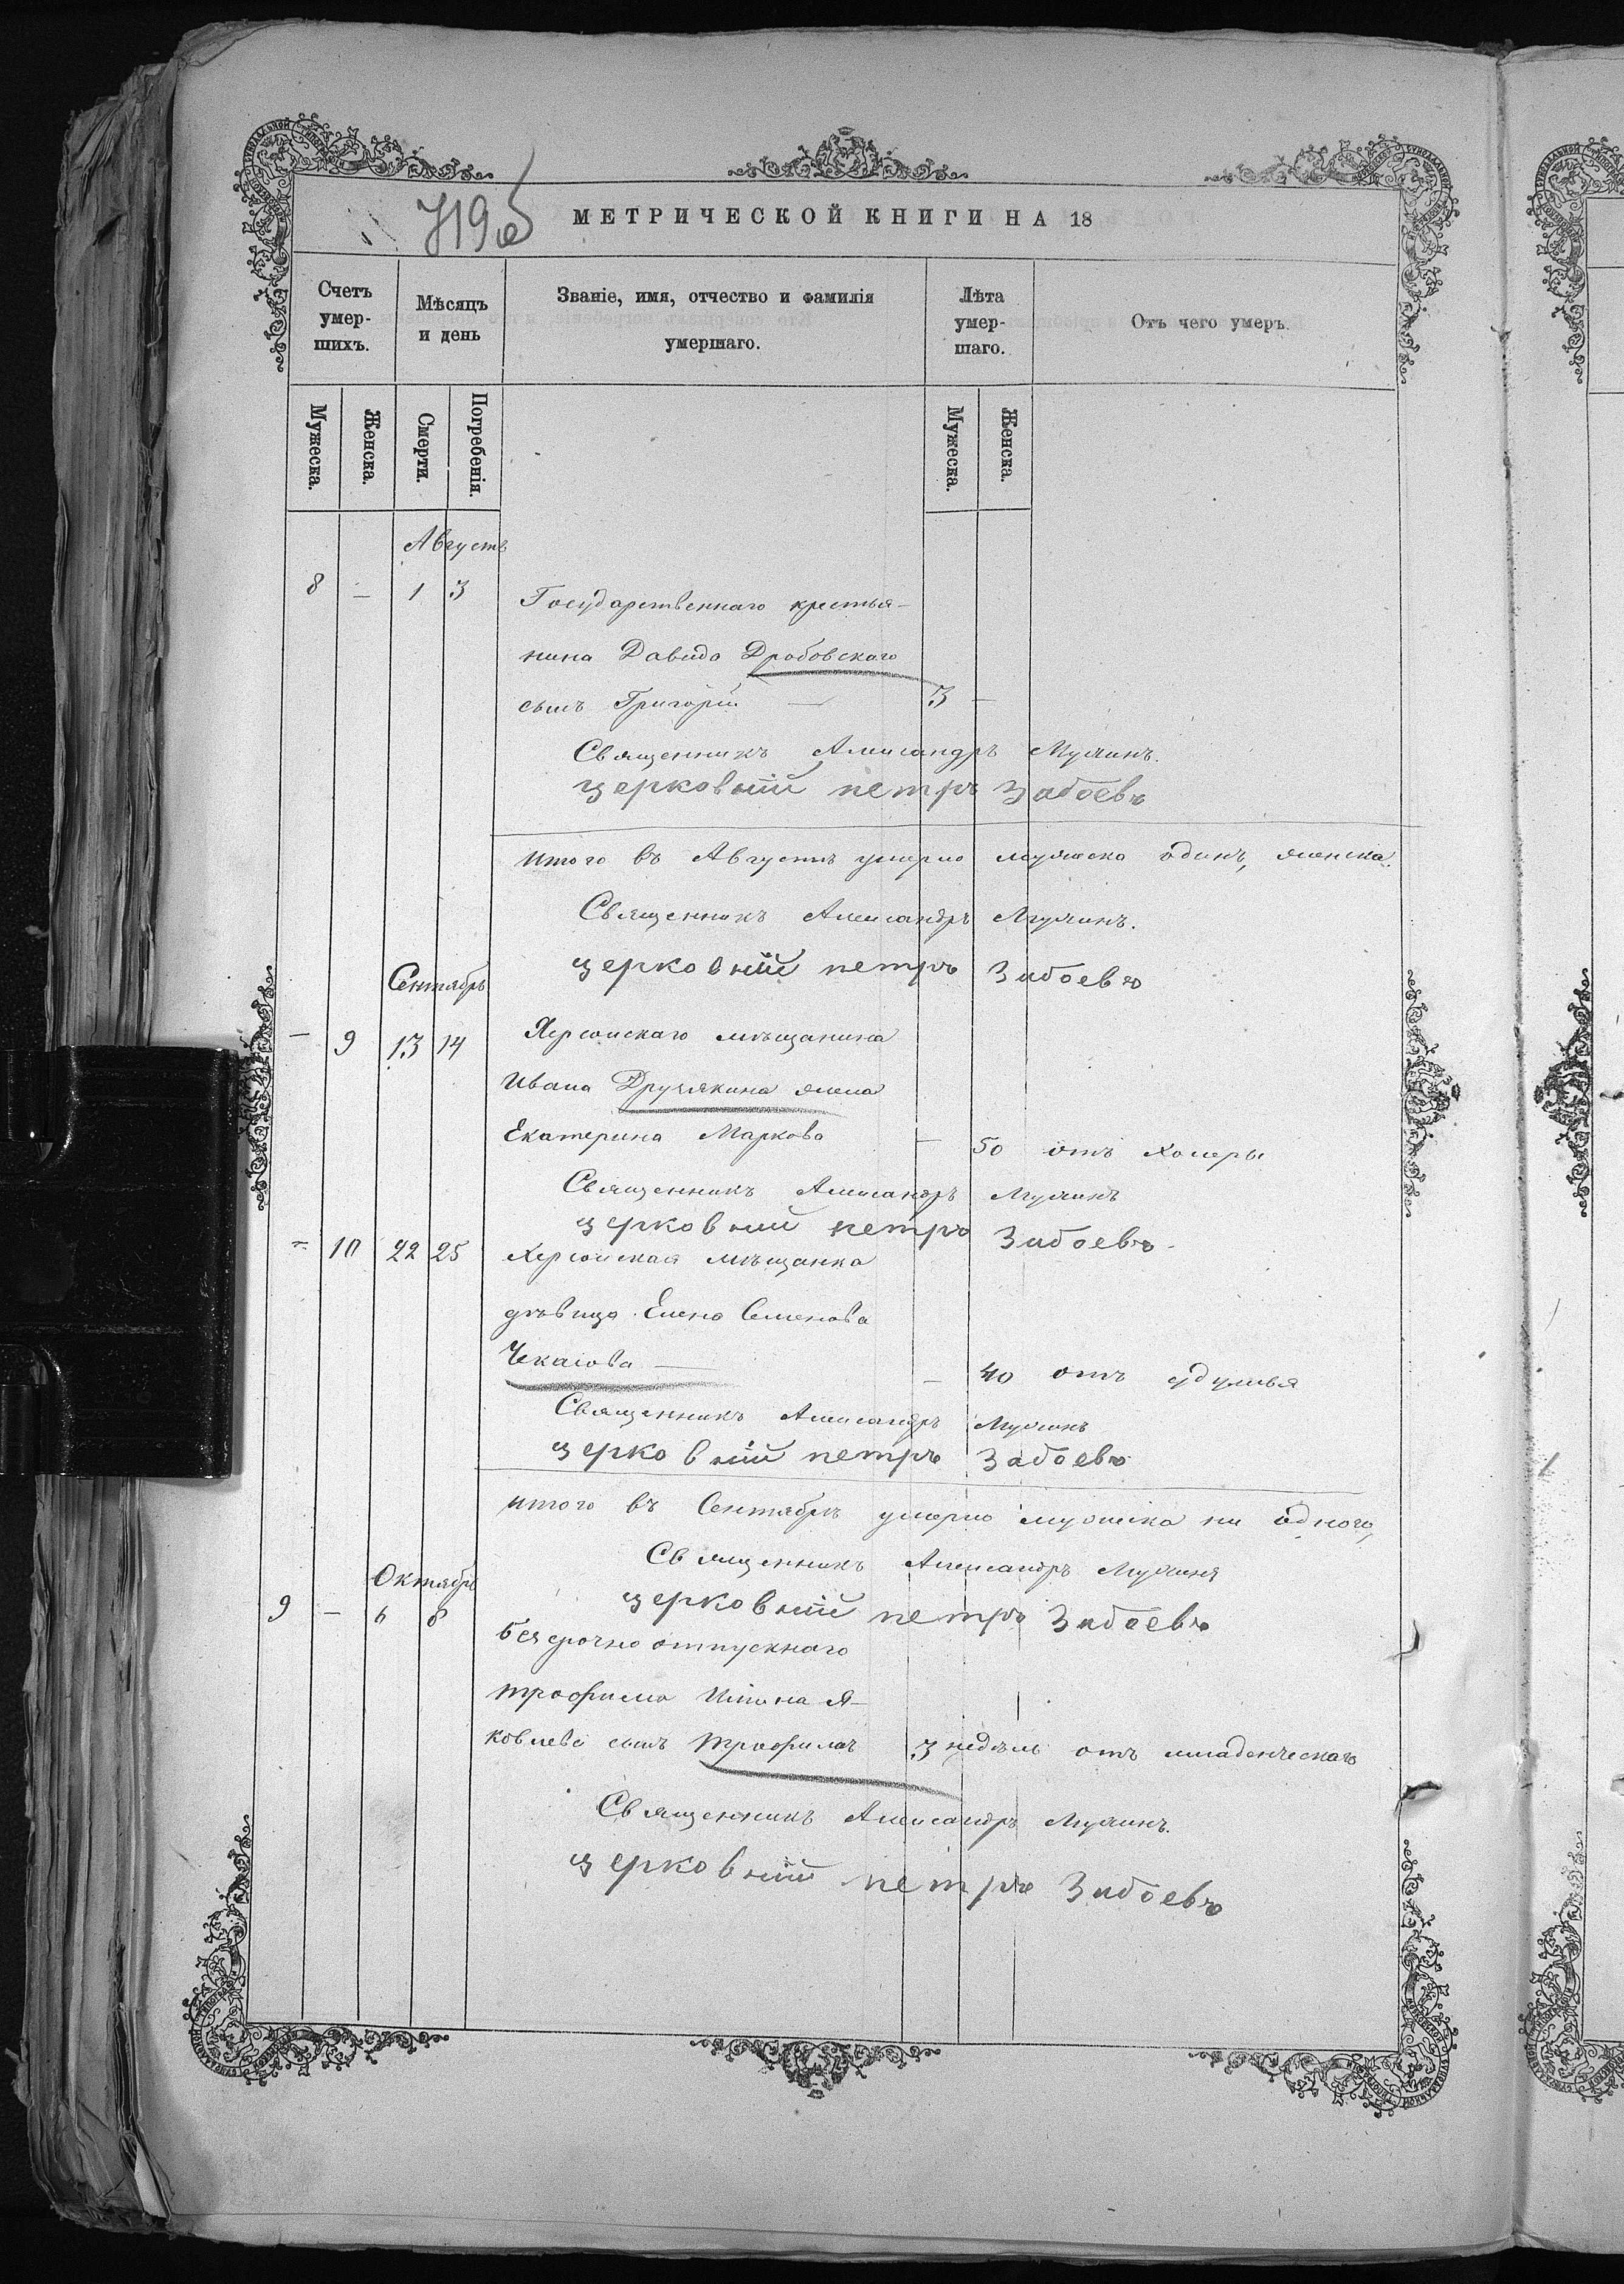 719об
МЕТРИЧЕСКОЙ КНИГИ НА 18
Счетъ умер-шихъ.
Мѣсяцъ и день
Званіе, имя, отчество и фамилія умершаго.
Лѣта умер-шаго.
Отъ чего умеръ.
Мужеска.
Женска.
Смерти.
Погребенія.
Мужеска.
Женска.
Августъ
8 — 1 3 Государственнаго крестья-
нина Давида Дробовскаго
сынъ Григорій — 3 —
Священникъ Александръ
церковній петръ Забоевъ
итого въ Августѣ умерло мужеска одинъ, женска
Священникъ Александръ
церковній петръ Забоевъ
Сентябрь
— 9 13 14 Херсонскаго мѣщанина
Ивана Дружкина жена
Екатерина Маркова — 50 отъ холеры
Священникъ Александръ
церковній петръ Забоевъ
— 10 22 25 Херсонская мѣщанка
дѣвица Елена Семенова
— 40 отъ удушья
Священникъ Александръ
церковній петръ Забоевъ
итого въ Сентябрѣ умерло мужеска ни одного,
Священникъ Александръ
Октябрь
церковній петръ Забоевъ
9 — 6 8 безсрочно отпускнаго
трофима Я-
ковлева сынъ трофимъ 3 недѣль отъ младенческаго
Священникъ Александръ
церковній петръ Забоевъ